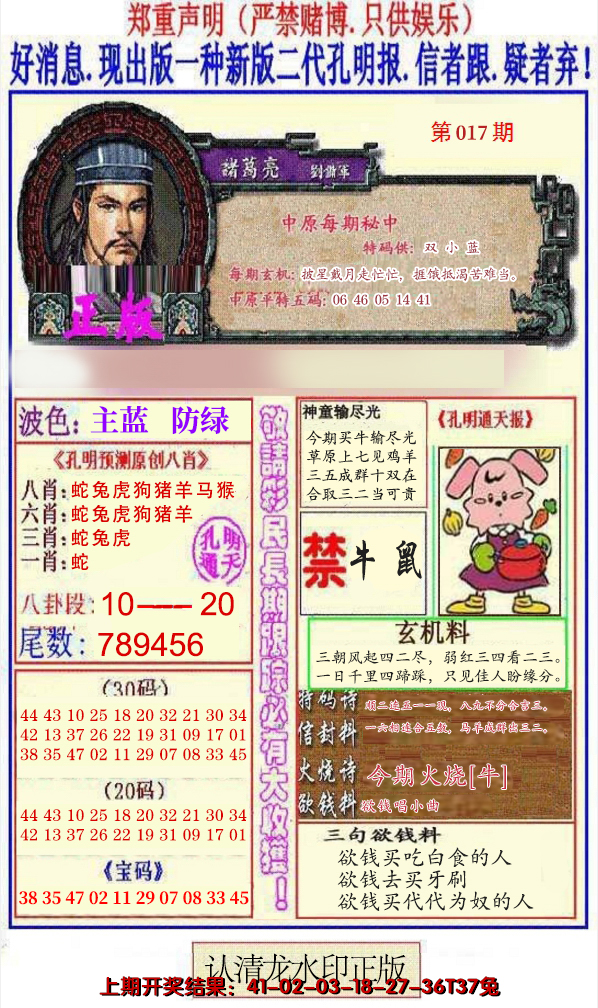 郑重声明（严禁赌博.只供娱乐）
好消息.现出版一种新版二代孔明报.信者跟.疑者弃！
第017期
諸葛亮 劉備軍
中原每期秘中
特码供：双小蓝
每期玄机：披星戴月走忙忙，捱饿抵渴苦难当。
中原平特五码：06 46 05 14 41
正版
波色：主蓝 防绿
《孔明预测原创八肖》
八肖：蛇兔虎狗猪羊马猴
六肖：蛇兔虎狗猪羊
三肖：蛇兔虎
一肖：蛇
孔明
通天
八卦段：10——20
尾数：789456
（30码）
44 43 10 25 18 20 32 21 30 34
42 13 37 26 22 19 31 09 17 01
38 35 47 02 11 29 07 08 33 45
（20码）
44 43 10 25 18 20 32 21 30 34
42 13 37 26 22 19 31 09 17 01
《宝码》
38 35 47 02 11 29 07 08 33 45
敬請彩民長期跟踪必有大收獲！
神童输尽光
今期买牛输尽光
草原上七见鸡羊
三五成群十双在
合取三二当可贵
《孔明通天报》
禁牛鼠
玄机料
三朝风起四二尽，弱红三四看二三。
一日千里四蹄踩，只见佳人盼缘分。
特码诗 顺二连至一一现，八九不分合吉三。
信封料 一六相连合五数，马羊成群出三二。
火烧诗 今期火烧[牛]
欲钱料 欲钱唱小曲
三句欲钱料
欲钱买吃白食的人
欲钱去买牙刷
欲钱买代代为奴的人
认清龙水印正版
上期开奖结果：41-02-03-18-27-36T37兔